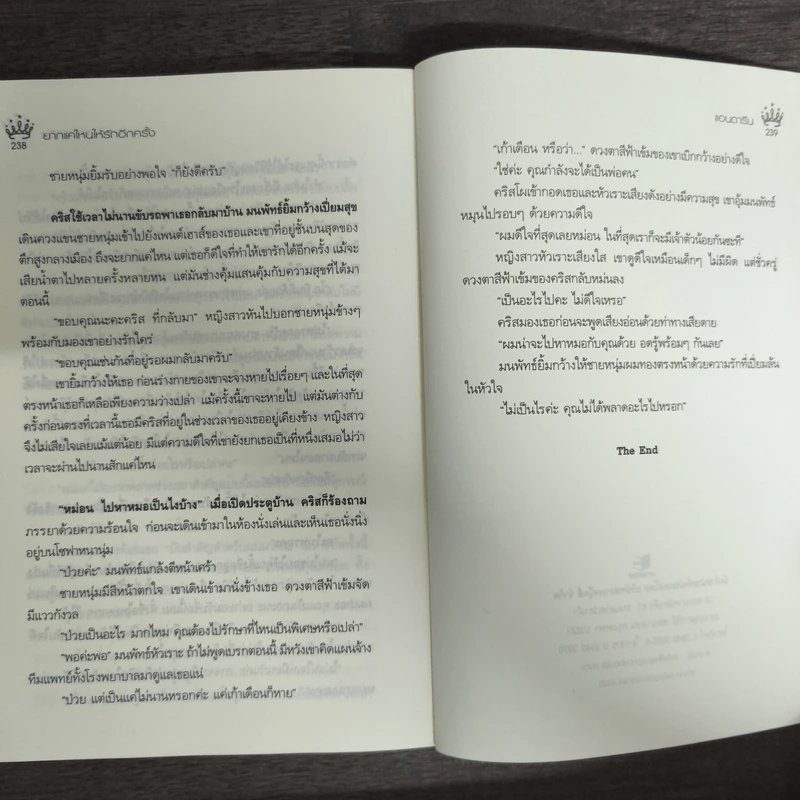 238
ยากแค่ไหนให้รักอีกครั้ง
ชายหนุ่มยิ้มรับอย่างพอใจ "ก็ยังดีครับ"
คริสใช้เวลาไม่นานขับรถพาเธอกลับมาบ้าน มนพัทธ์ยิ้มกว้างเปี่ยมสุข
เดินควงแขนชายหนุ่มเข้าไปยังเพนต์เฮาส์ของเธอและเขาที่อยู่ชั้นบนสุดของ
ตึกสูงกลางเมือง ถึงจะยากแค่ไหน แต่เธอก็ดีใจที่ทำให้เขารักได้อีกครั้ง แม้จะ
เสียน้ำตาไปหลายครั้งหลายหน แต่มันช่างคุ้มแสนคุ้มกับความสุขที่ได้มา
ตอนนี้
"ขอบคุณนะคะคริส ที่กลับมา" หญิงสาวหันไปบอกชายหนุ่มข้างๆ
พร้อมกับมองเขาอย่างรักใคร่
"ขอบคุณเช่นกันที่อยู่รอผมกลับมาครับ"
เขายิ้มกว้างให้เธอ ก่อนร่างกายของเขาจะจางหายไปเรื่อยๆ และในที่สุด
ตรงหน้าเธอก็เหลือเพียงความว่างเปล่า แม้ครั้งนี้เขาจะหายไป แต่มันต่างกับ
ครั้งก่อนตรงที่เวลานี้เธอมีคริสที่อยู่ในช่วงเวลาของเธออยู่เคียงข้าง หญิงสาว
จึงไม่เสียใจเลยแม้แต่น้อย มีแต่ความดีใจที่เขายังยกเธอเป็นที่หนึ่งเสมอไม่ว่า
เวลาจะผ่านไปนานสักแค่ไหน
"หม่อน ไปหาหมอเป็นไงบ้าง" เมื่อเปิดประตูบ้าน คริสก็ร้องถาม
ภรรยาด้วยความร้อนใจ ก่อนจะเดินเข้ามาในห้องนั่งเล่นและเห็นเธอนั่งนิ่ง
อยู่บนโซฟาหนานุ่ม
"ป่วยค่ะ" มนพัทธ์แกล้งตีหน้าเศร้า
ชายหนุ่มมีสีหน้าตกใจ เขาเดินเข้ามานั่งข้างเธอ ดวงตาสีฟ้าเข้มจัด
มีแววกังวล
"ป่วยเป็นอะไร มากไหม คุณต้องไปรักษาที่ไหนเป็นพิเศษหรือเปล่า"
"พอค่ะพอ" มนพัทธ์หัวเราะ ถ้าไม่พูดเบรกตอนนี้ มีหวังเขาคิดแผนจ้าง
ทีมแพทย์ทั้งโรงพยาบาลมาดูแลเธอแน่
"ป่วย แต่เป็นแค่ไม่นานหรอกค่ะ แค่เก้าเดือนก็หาย"
แอนดารีน
239
"เก้าเดือน หรือว่า..." ดวงตาสีฟ้าเข้มของเขาเบิกกว้างอย่างดีใจ
"ใช่ค่ะ คุณกำลังจะได้เป็นพ่อคน"
คริสโผเข้ากอดเธอและหัวเราะเสียงดังอย่างมีความสุข เขาอุ้มมนพัทธ์
หมุนไปรอบๆ ด้วยความดีใจ
"ผมดีใจที่สุดเลยหม่อน ในที่สุดเราก็จะมีเจ้าตัวน้อยกันซะที"
หญิงสาวหัวเราะเสียงใส เขาดูดีใจเหมือนเด็กๆ ไม่มีผิด แต่ชั่วครู่
ดวงตาสีฟ้าเข้มของคริสกลับหม่นลง
"เป็นอะไรไปคะ ไม่ดีใจเหรอ"
คริสมองเธอก่อนจะพูดเสียงอ่อนด้วยท่าทางเสียดาย
"ผมน่าจะไปหาหมอกับคุณด้วย อดรู้พร้อมๆ กันเลย"
มนพัทธ์ยิ้มกว้างให้ชายหนุ่มผมทองตรงหน้าด้วยความรักที่เปี่ยมล้น
ในหัวใจ
"ไม่เป็นไรค่ะ คุณไม่ได้พลาดอะไรไปหรอก"
The End